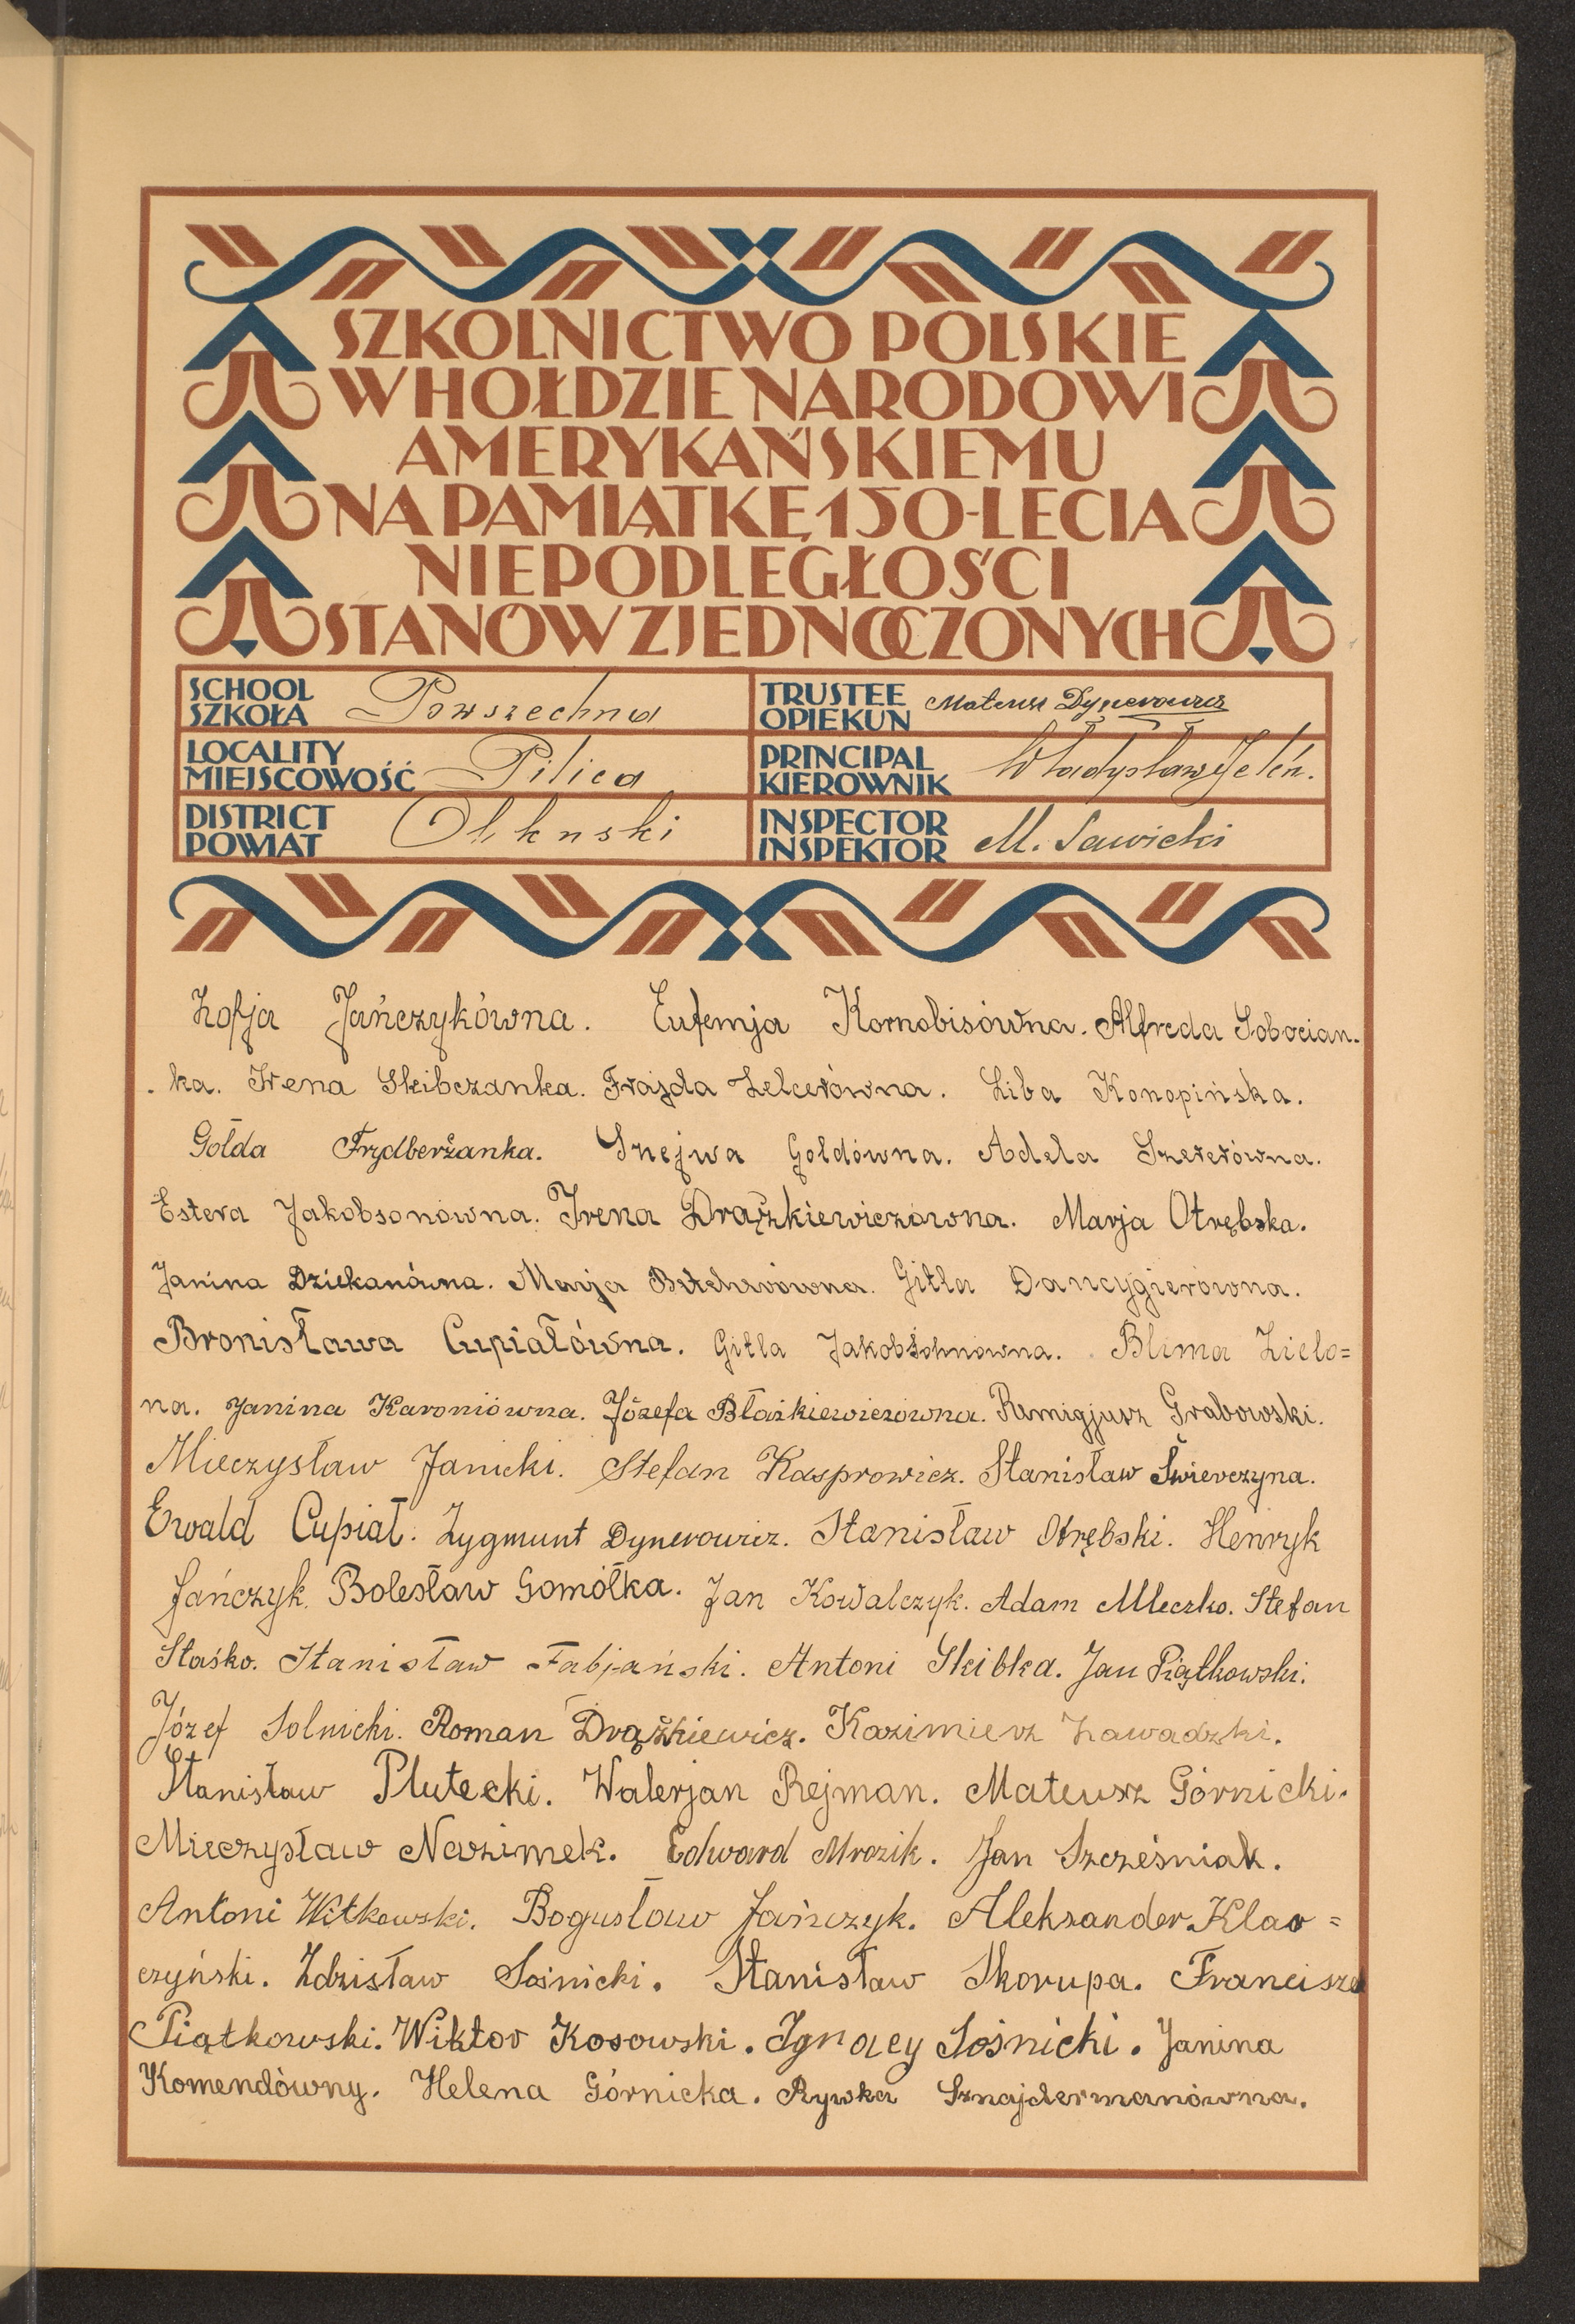 SZKOLNICTWO POLSKIE
W HOŁDZIE NARODOWI
AMERYKAŃSKIEMU
NA PAMIĄTKĘ 150-LECIA
NIEPODLEGŁOŚCI
STANÓW ZJEDNOCZONYCH
SCHOOL
SZKOŁA Powszechna
TRUSTEE
OPIEKUN Mateusz Dynerowicz
LOCALITY
MIEJSCOWOŚĆ Pilica
PRINCIPAL
KIEROWNIK Władysław Jeleń.
DISTRICT
POWIAT Olkuski
INSPECTOR
INSPEKTOR M. Sawicki
Zofja Jańczykówna. Eufemja Kornobisówna. Alfreda Sobocian-
-ka. Irena Skibczanka. Frajda Zelcerówna. Liba Konopińska.
Gołda Frydberżanka. Sznejwa Goldówna. Adela Szererówna.
Estera Jakobsonówna. Irena Drążkiewiczówna. Marja Otrębska.
Janina Dziekanówna. Marja Gitla Dancygierówna.
Bronisława Cupiałówna. Gitla Jakobsohnówna. Blima Zielo=
na. Janina Karoniówna. Józefa Błażkiewiczówna. Remigjusz Grabowski.
Mieczysław Janicki. Stefan Kasprowicz. Stanisław Świerczyna.
Ewald Cupiał. Zygmunt Dynerowicz. Stanisław Otrębski. Henryk
Jańczyk. Bolesław Gomółka. Jan Kowalczyk. Adam Mleczko. Stefan
Staśko. Stanisław Fabjański. Antoni Skibka. Jan Piątkowski.
Józef Solnicki. Roman Drążkiewicz. Kazimierz Zawadzki.
Stanisław Plutecki. Walerjan Rejman. Mateusz Górnicki.
Mieczysław Nazimek. Edward Mrozik. Jan Szcześniak.
Antoni Witkowski. Bogusław Jańczyk. Aleksander Klar=
czyński. Zdzisław Sośnicki. Stanisław Skorupa. Franciszek
Piątkowski. Wiktor Kosowski. Ignacy Sośnicki. Janina
Komendówny. Helena Górnicka. Rywka Sznajdermanówna.